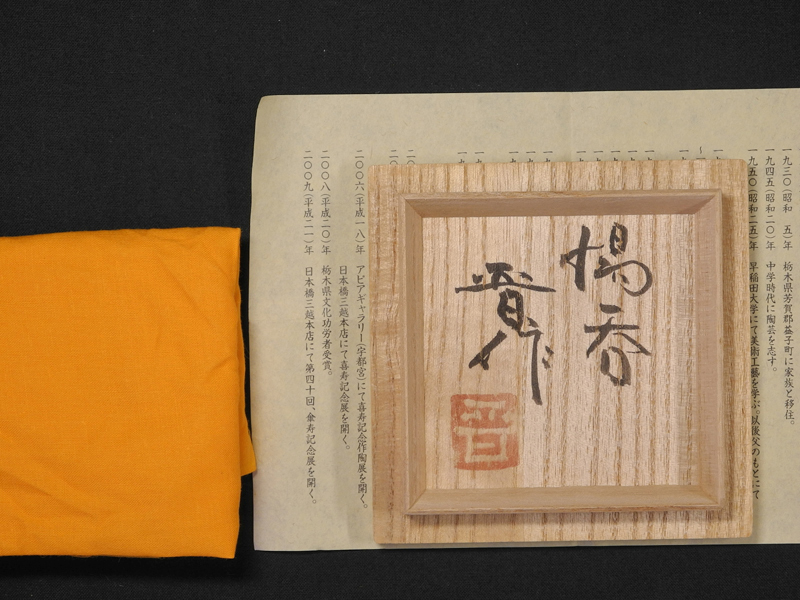 一九三〇(昭和　五)年　栃木県芳賀郡益子町に家族と移住。
一九四五(昭和二〇)年　中学時代に陶芸を志す。
一九五〇(昭和二五)年　早稲田大学にて美術工藝を学ぶ。以後父のもとにて
湯呑
晋作
晋
二〇〇六(平成一八)年　アピアギャラリー(宇都宮)にて喜寿記念作陶展を開く。
日本橋三越本店にて喜寿記念展を開く。
二〇〇八(平成二〇)年　栃木県文化功労者受賞。
二〇〇九(平成二一)年　日本橋三越本店にて第四十回、傘寿記念展を開く。